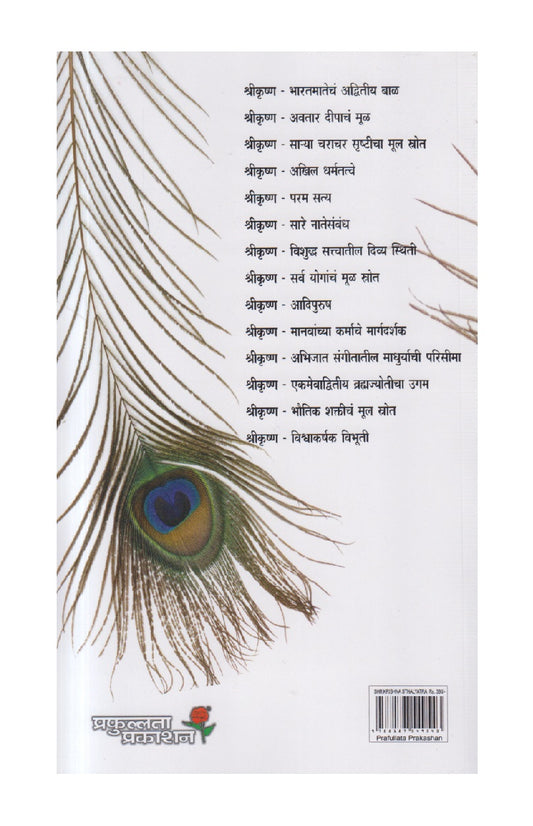 श्रीकृष्ण - भारतमातेचं अद्वितीय बाळ
श्रीकृष्ण - अवतार दीपाचं मूळ
श्रीकृष्ण - साऱ्या चराचर सृष्टीचा मूल स्रोत
श्रीकृष्ण - अखिल धर्मतत्वे
श्रीकृष्ण - परम सत्य
श्रीकृष्ण - सारे नातेसंबंध
श्रीकृष्ण - विशुद्ध सत्त्वातील दिव्य स्थिती
श्रीकृष्ण - सर्व योगांचं मूळ स्रोत
श्रीकृष्ण - आदिपुरुष
श्रीकृष्ण - मानवांच्या कर्माचे मार्गदर्शक
श्रीकृष्ण - अभिजात संगीतातील माधुर्याची परिसीमा
श्रीकृष्ण - एकमेवाद्वितीय ब्रह्मज्योतीचा उगम
श्रीकृष्ण - भौतिक शक्तीचं मूल स्रोत
श्रीकृष्ण - विश्वाकर्षक विभूती
प्रफुल्लता
प्रकाशन
SHRIKRISHNA STHALYATRA Rs.
Prafullata Prakashan